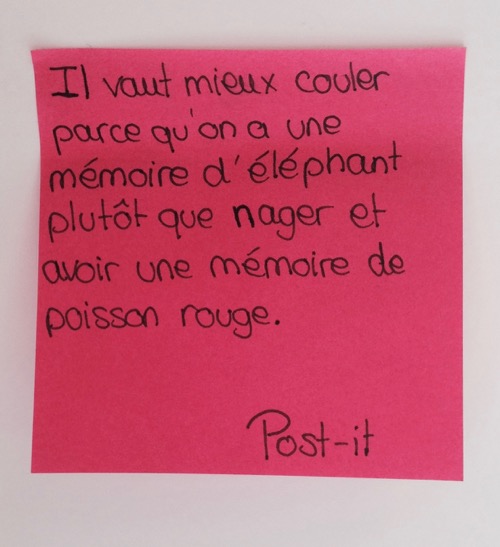 Il vaut mieux couler
parce qu'on a une
mémoire d'éléphant
plutôt que nager et
avoir une mémoire de
poisson rouge.
Post-it